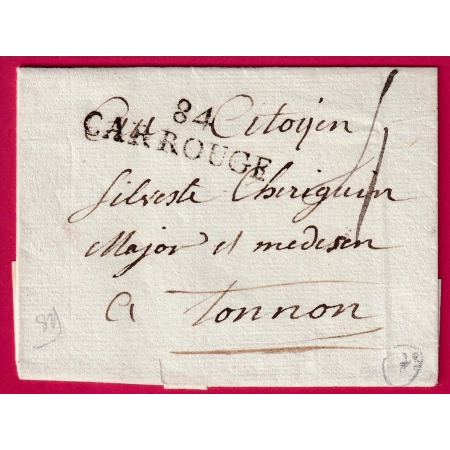 84
CARROUGE
Au Citoyen
Silveste Cheriguin
Major et medesen
a Tonnon
84